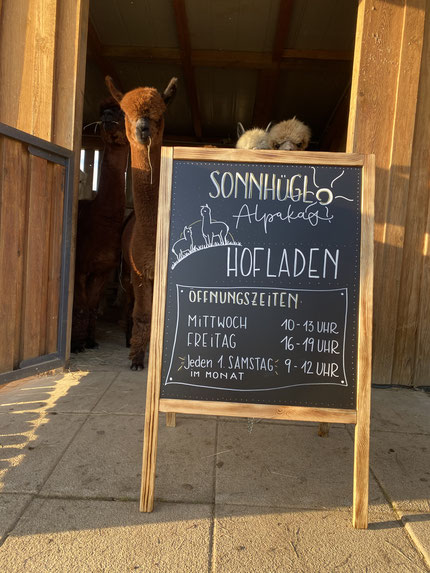 SONNHÜGL
Alpakas!
HOFLADEN
ÖFFNUNGSZEITEN
MITTWOCH 10-13 UHR
FREITAG 16-19 UHR
Jeden 1. SAMSTAG 9-12 UHR
IM MONAT